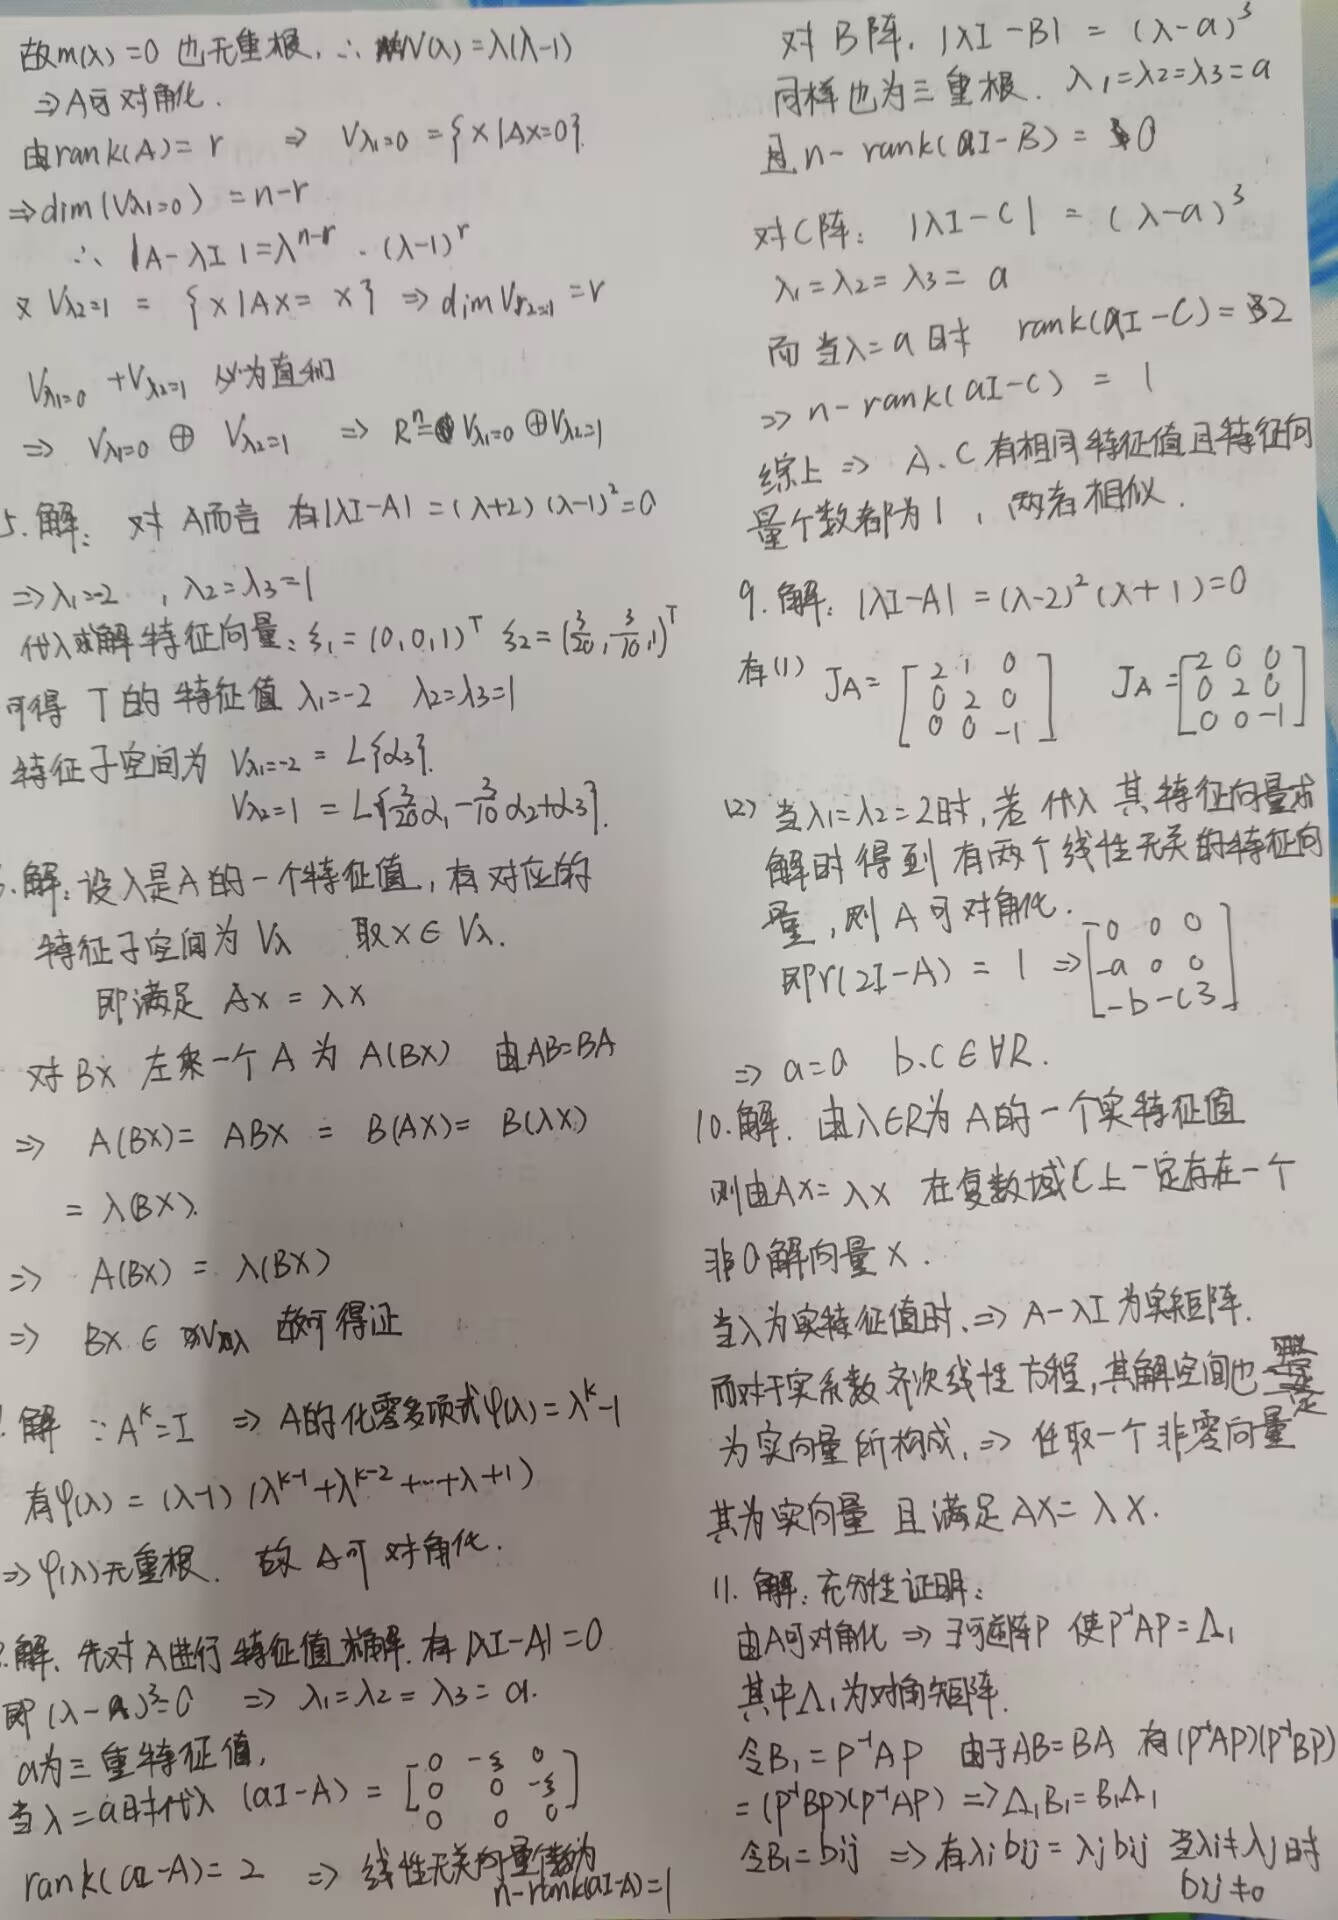 故m(λ)=0 也无重根, ∴ N(λ)=λ(λ-1)
⇒A可对角化.
由rank(A)=r ⇒ Vλ₁=0 = {x|Ax=0}.
⇒dim(Vλ₁=0) = n-r
∴ |A-λI|=λⁿ⁻ʳ · (λ-1)ʳ
又 Vλ₂=1 = {x|Ax= x} ⇒ dim Vλ₂=1 = r
Vλ₁=0 + Vλ₂=1 必为直和
⇒ Vλ₁=0 ⊕ Vλ₂=1 ⇒ Rⁿ= Vλ₁=0 ⊕ Vλ₂=1
5. 解: 对 A而言 有|λI-A| = (λ+2)(λ-1)²=0
⇒λ₁=-2 , λ₂=λ₃=1
代入求解特征向量: ξ₁=(0,0,1)ᵀ ξ₂=(3/20,-3/10,1)ᵀ
可得 T的特征值 λ₁=-2 λ₂=λ₃=1
特征子空间为 Vλ₁=-2 = L{α₃}.
Vλ₂=1 = L{3/20α₁-3/10α₂+α₃}.
解: 设λ是A的一个特征值, 有对应的
特征子空间为 Vλ 取x∈Vλ.
即满足 Ax = λx
对 Bx 左乘一个 A 为 A(Bx) 由AB=BA
⇒ A(Bx)= ABx = B(Ax)= B(λx)
= λ(Bx).
⇒ A(Bx) = λ(Bx)
⇒ Bx ∈ Vλ 故可得证
解 ∵Aᵏ=I ⇒ A的化零多项式φ(λ)=λᵏ-1
有φ(λ)=(λ-1)(λᵏ⁻¹+λᵏ⁻²+…+λ+1)
⇒φ(λ)无重根. 故 A可对角化.
解. 先对A进行特征值求解. 有|λI-A|=0
即(λ-a)³=0 ⇒ λ₁=λ₂=λ₃=a.
a为三重特征值,
当λ=a时代入 (aI-A) = [0 -ξ 0
0 0 -ξ
0 0 0]
rank(aI-A)=2 ⇒ 线性无关向量个数为
n-rank(aI-A)=1
对B阵, |λI-B| = (λ-a)³
同样也为三重根. λ₁=λ₂=λ₃=a
且 n-rank(aI-B) = 0
对C阵: |λI-C| = (λ-a)³
λ₁=λ₂=λ₃= a
而当λ=a时 rank(aI-C)=2
⇒ n-rank(aI-C) = 1
综上 ⇒ A.C有相同特征值且特征向
量个数都为1, 两者相似.
9. 解: |λI-A|=(λ-2)²(λ+1)=0
有(1) JA= [2 1 0 JA=[2 0 0
0 2 0 0 2 0
0 0 -1] 0 0 -1]
(2) 当λ₁=λ₂=2时, 若代入其特征向量求
解时得到有两个线性无关的特征向
量, 则A可对角化.
即r(2I-A)=1 ⇒ [0 0 0
-a 0 0
-b -c 3]
⇒ a=0 b.c∈∀R.
10. 解. 由λ∈R为A的一个实特征值
则由Ax=λx 在复数域C上一定存在一个
非0解向量x.
当λ为实特征值时, ⇒ A-λI为实矩阵.
而对于实系数齐次线性方程, 其解空间也一定
为实向量所构成, ⇒ 任取一个非零向量
其为实向量且满足Ax=λx.
11. 解: 充分性证明:
由A可对角化 ⇒ ∃可逆阵P 使P⁻¹AP=Λ₁
其中Λ₁为对角矩阵.
令B₁=P⁻¹AP 由于AB=BA 有(P⁻¹AP)(P⁻¹BP)
=(P⁻¹BP)(P⁻¹AP) ⇒Λ₁B₁=B₁Λ₁
令B₁=bij ⇒有λibij=λjbij 当λi≠λj时
bij≠0